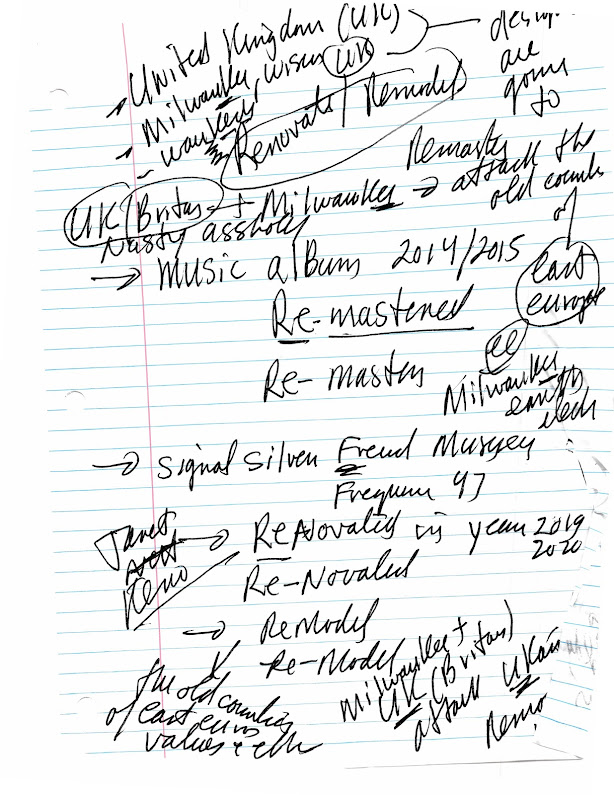 United Kingdom (UK)
Milwaukee, wiscon UK
waukee
are
going
to
Renovate / Remodel
Remaster
UK (Britas + Milwaukee → attack the
old countr
Nasty asshole
of
→ Music album 2014/2015
east
europe
Re-mastered
ee
Re-master
Milwaukee
earth
→ Signal Silver Freud
Frequen 47
Janet
Reno
→ ReNovated in year 2019
2020
Re-Novated
→ ReModel
Re-Model
the old countries
of east euro
values + eth
Milwaukee +
UK (Britas)
attack UKrai
Remo